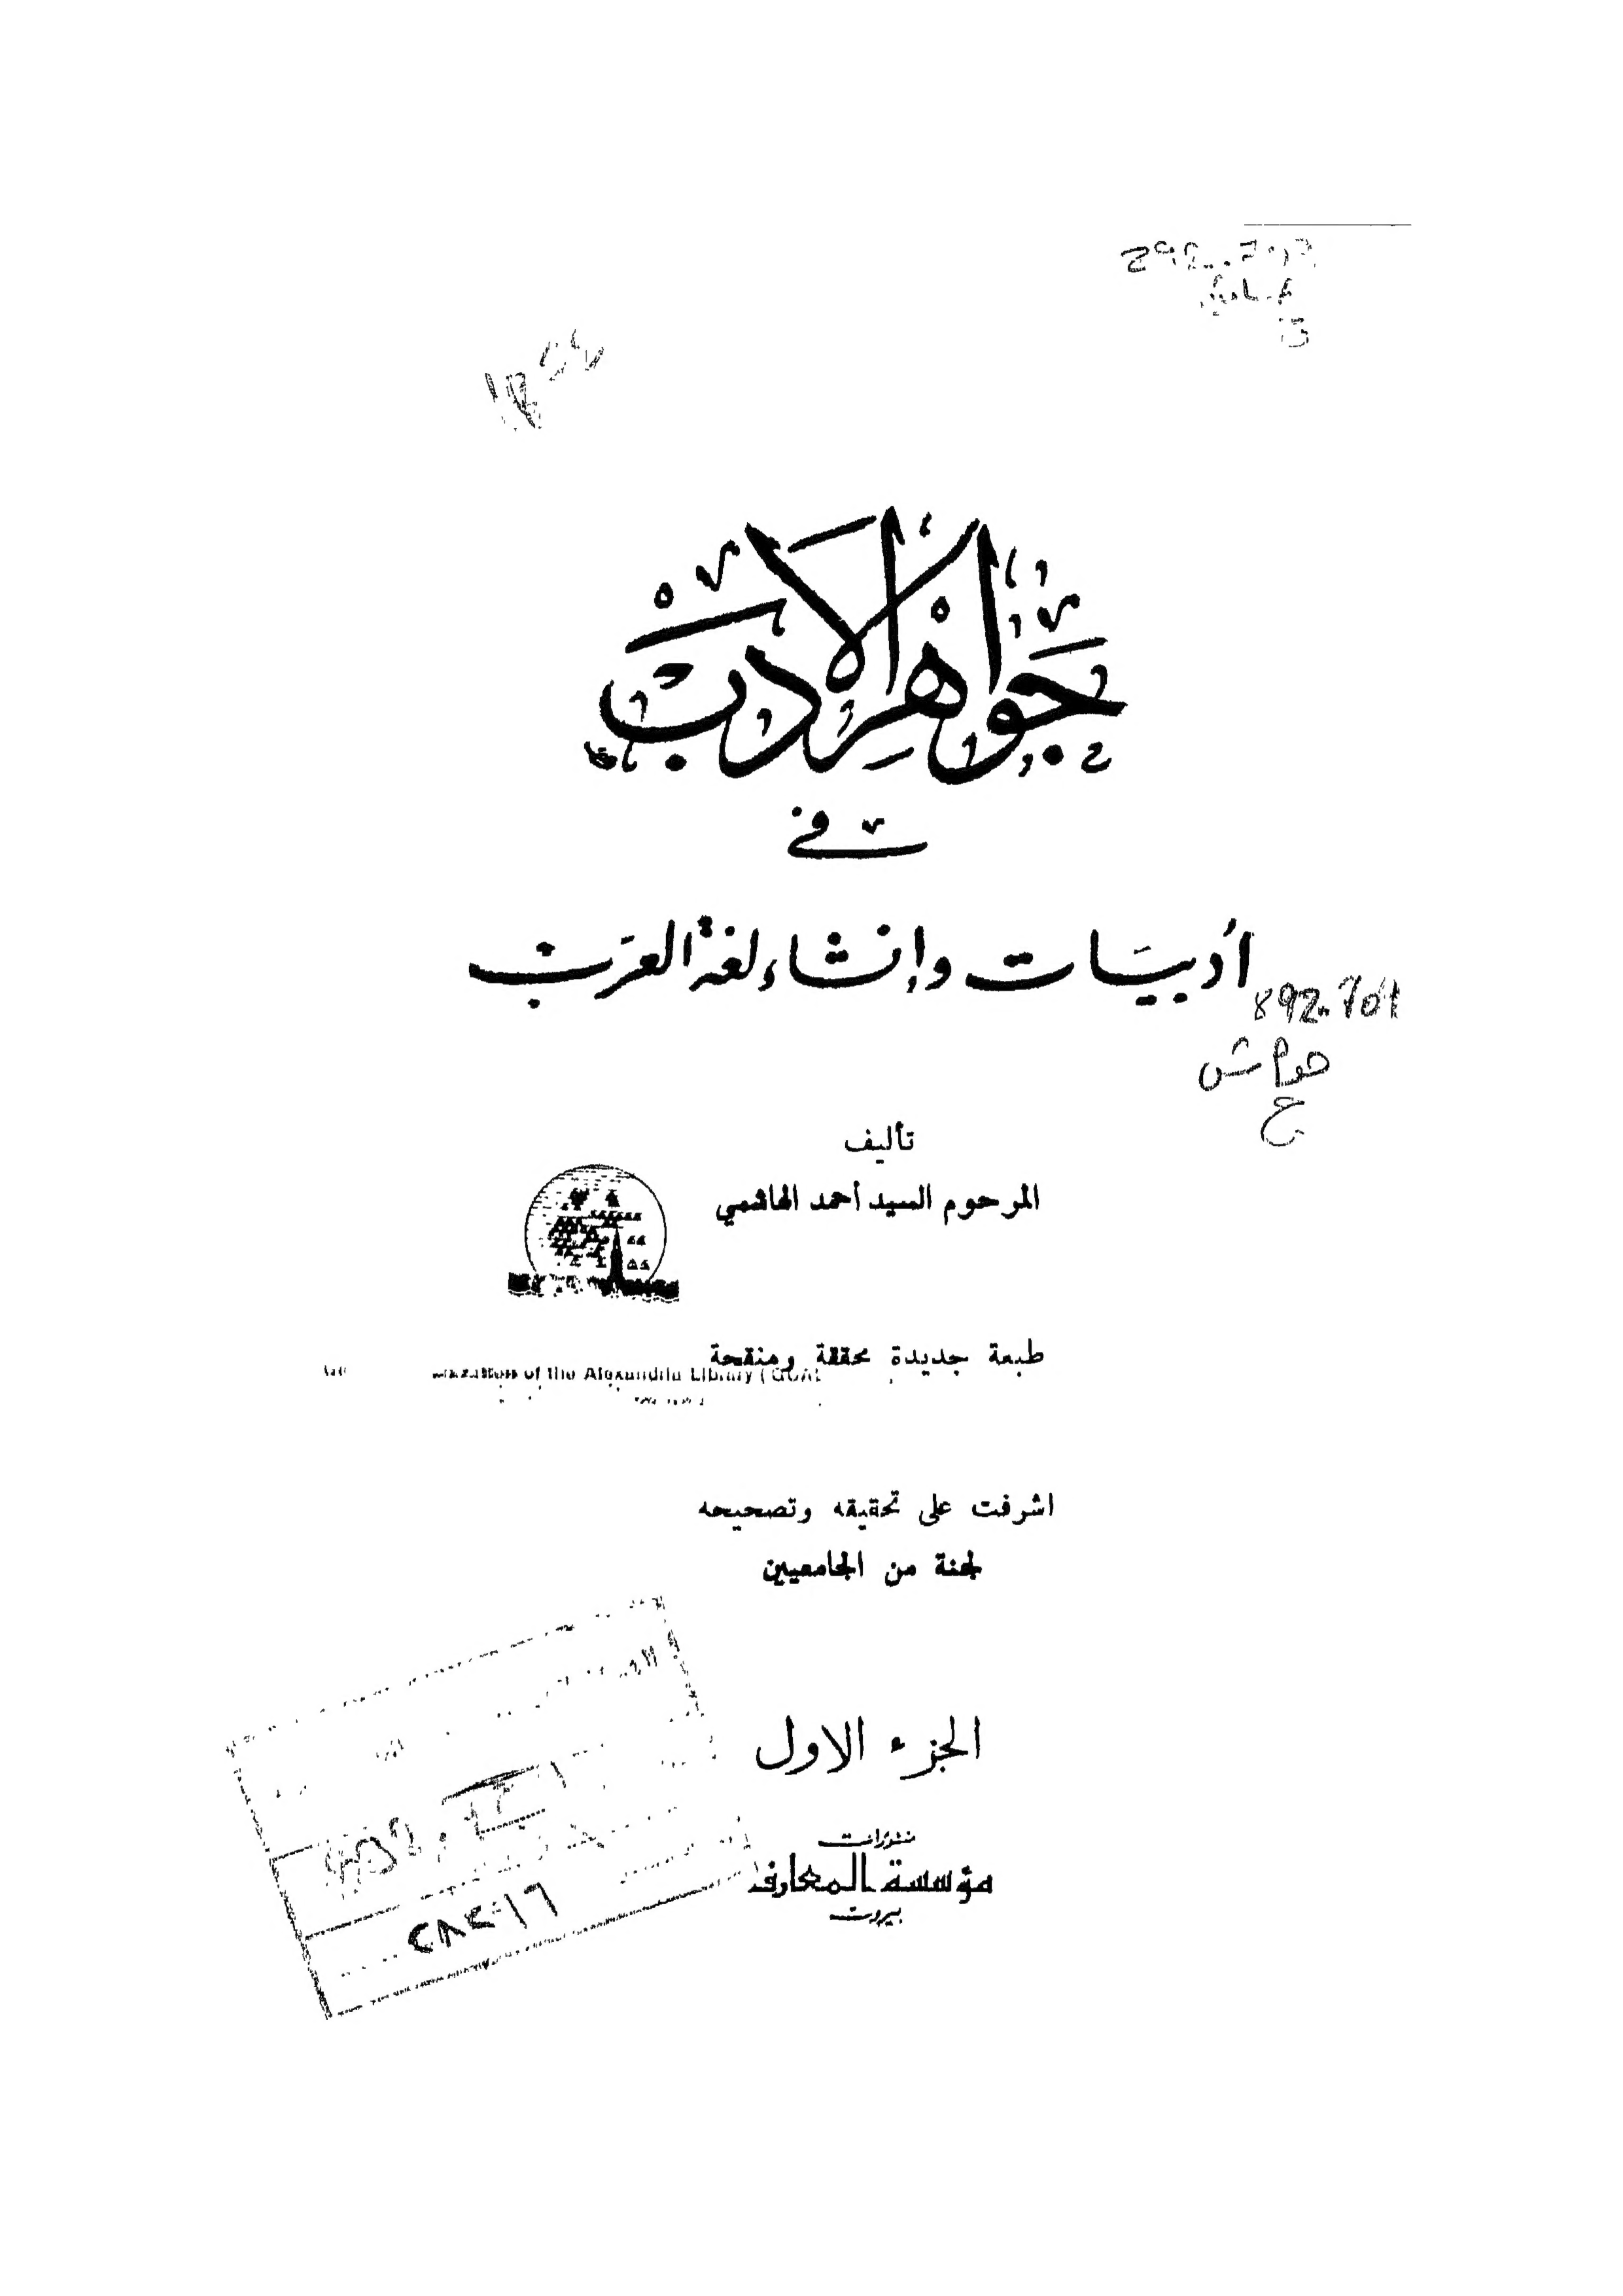 جَوَاهِرُ الأَدَبْ
في
أدبيَات وإنشاء لغة العرَبْ
892.701
تأليف
المرحوم السيد أحمد الهاشمي
طبعة جديدة محققة ومنقحة
of the Alexandria Library
اشرفت على تحقيقه وتصحيحه
لجنة من الجامعيين
الجزء الاول
منشورات
مؤسسة المعارف
بيروت